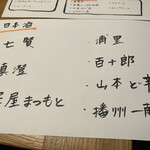 日本酒
七賢
真澄
屋まつもと
・浦里
・百十郎
・山本ど
・播州一